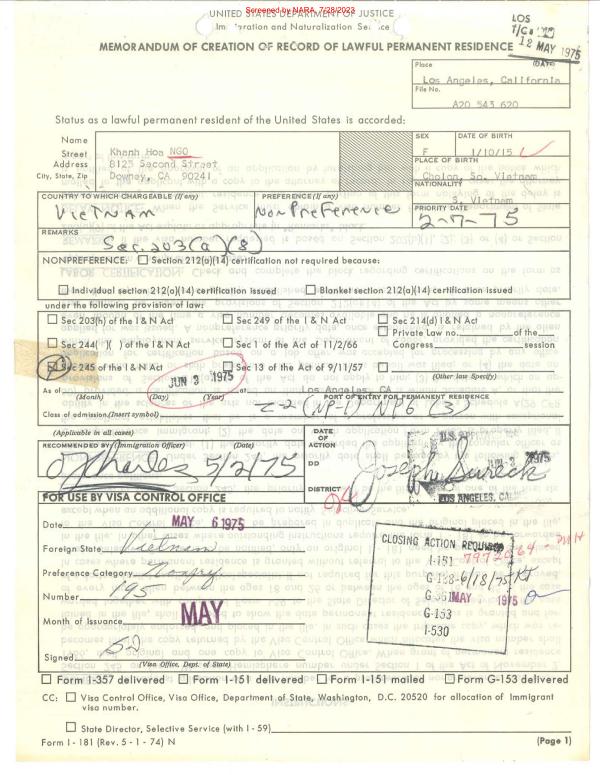 Screened by NARA, 7/28/2023
UNITED STATES DEPARTMENT OF JUSTICE
Immigration and Naturalization Service
MEMORANDUM OF CREATION OF RECORD OF LAWFUL PERMANENT RESIDENCE
LOS
12 MAY 1975
Place
Los Angeles, California
File No.
A20 543 620
Status as a lawful permanent resident of the United States is accorded:
Name
Street
Address
City, State, Zip
Khanh Hoa NGO
8125 Second Street
Downey, CA 90241
SEX
F
DATE OF BIRTH
1/10/15
PLACE OF BIRTH
Cholon, So. Vietnam
NATIONALITY
S. Vietnam
COUNTRY TO WHICH CHARGEABLE (If any)
VIETNAM
PREFERENCE (If any)
NonPreference
PRIORITY DATE
2-7-75
REMARKS
Sec. 203(a)(8)
NONPREFERENCE: Section 212(a)(14) certification not required because:
Individual section 212(a)(14) certification issued
Blanket section 212(a)(14) certification issued
under the following provision of law:
Sec 203(h) of the I & N Act
Sec 249 of the I & N Act
Sec 214(d) I & N Act
Private Law no. of the
Sec 244( )( ) of the I & N Act
Sec 1 of the Act of 11/2/66
Congress session
Sec 245 of the I & N Act
Sec 13 of the Act of 9/11/57
(Other law Specify)
As of JUN 3 1975 at Los Angeles, CA
(Month) (Day) (Year)
PORT OF ENTRY FOR PERMANENT RESIDENCE
Class of admission, (Insert symbol) Z-2 (NP-1) NP6 (3)
(Applicable in all cases)
RECOMMENDED BY: (Immigration Officer) (Date)
5/2/75
DATE OF ACTION
DD
DISTRICT
Joseph Sureck
LOS ANGELES, CALIF.
FOR USE BY VISA CONTROL OFFICE
Date MAY 6 1975
Foreign State Vietnam
Preference Category
Number 195
Month of Issuance MAY
Signed
(Visa Office, Dept. of State)
CLOSING ACTION REQUIRED
I-151
G-188-6/18/75
G-361 MAY 1975
G-153
I-530
Form I-357 delivered Form I-151 delivered Form I-151 mailed Form G-153 delivered
CC: Visa Control Office, Visa Office, Department of State, Washington, D.C. 20520 for allocation of Immigrant
visa number.
State Director, Selective Service (with I-59)
Form I-181 (Rev. 5-1-74) N
(Page 1)